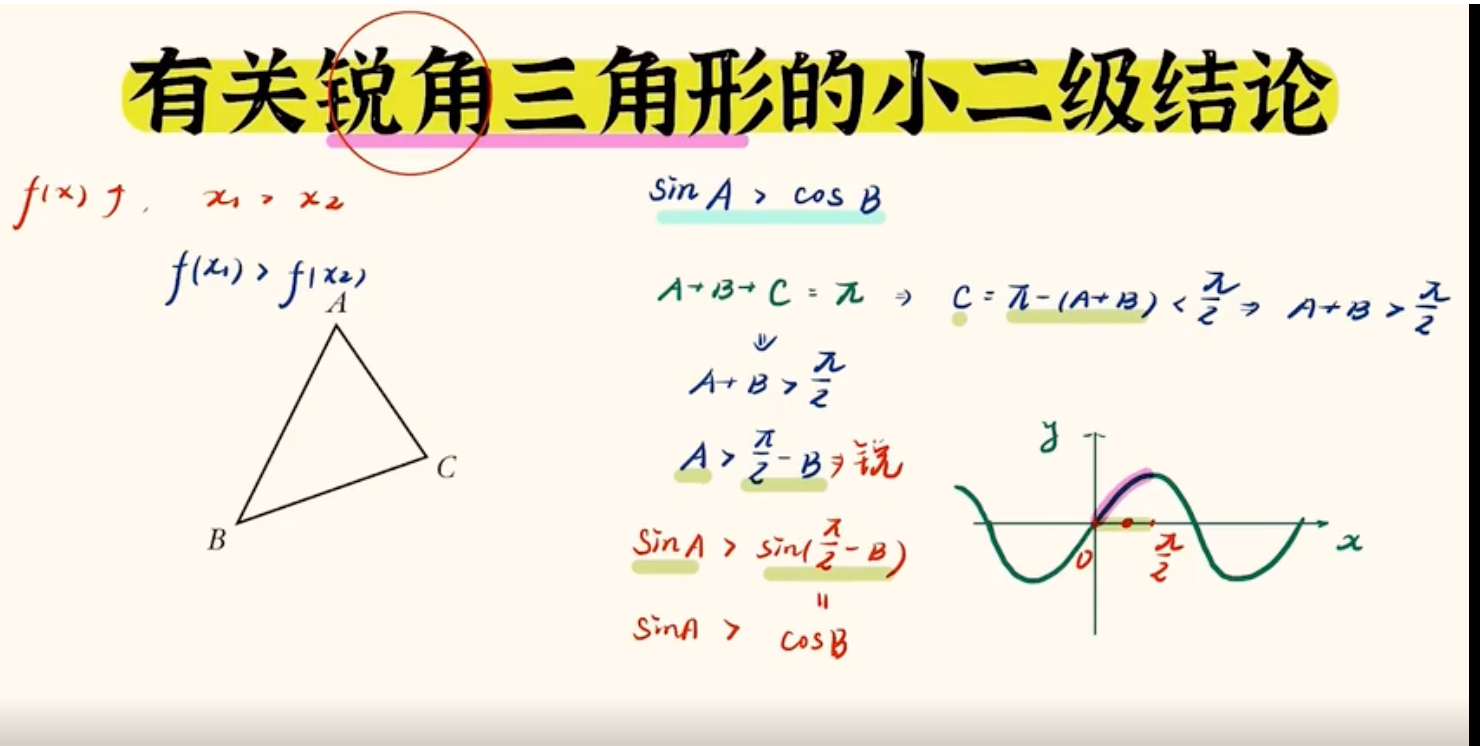 有关锐角三角形的小二级结论
f(x)↑, x₁ > x₂
f(x₁) > f(x₂)
sin A > cos B
A+B+C = π ⇒ C = π-(A+B) < π/2 ⇒ A+B > π/2
⇓
A+B > π/2
A > π/2 - B ⇒ 锐
sinA > sin(π/2 - B)
=
sinA > cosB
A
B
C
y
0
π/2
x